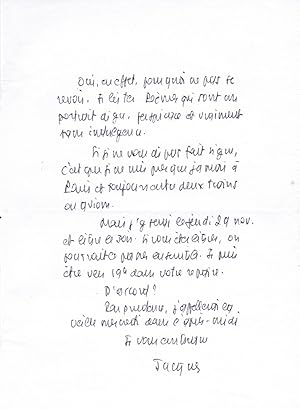 Oui, en effet, pourquoi ne pas se
revoir. J'ai lu tes poèmes qui sont un
portrait digne, et vraiment
sans indulgence.
Si je ne vous ai pas fait signe,
c'est que je ne suis presque jamais à
Paris et toujours entre deux trains
ou avions.
Mais j'y serai le jeudi 29 nov.
et libre le soir. Si vous êtes libre, on
pourrait ensemble. Je puis
être vers 19h dans votre repaire.
D'accord?
Par prudence, j'appellerai
veille mercredi dans l'après-midi.
Je vous embrasse
Jacques